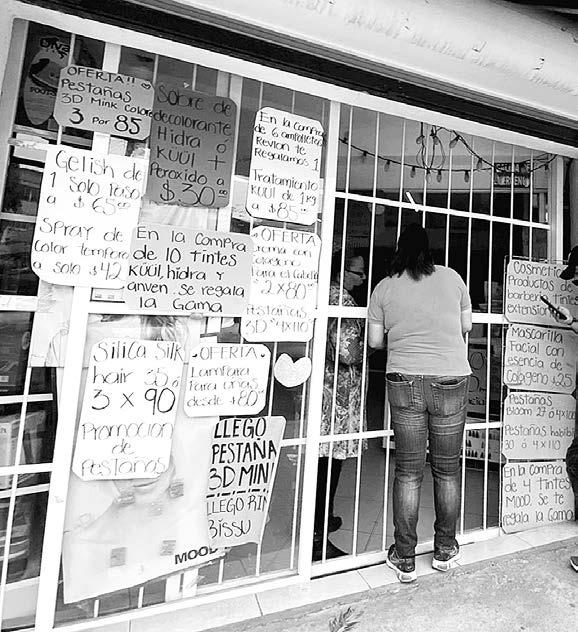 OFERTA!!
Pestañas
3D Mink Colores
3 Por 85
Sobre de
decolorante
Hidra ó
KÜÜL +
Peroxido a
$30.00
En la Compra
de 6 ampolletas
Revlon te
Regalamos 1
Tratamiento
KÜÜL de 1kg
a $85.00
Gelish de
1 Solo Paso
a $65.00
Spray de
Color temporal
a solo $42
En la Compra
de 10 tintes
KÜÜL, hidra y
anven. se regala
la Gama
OFERTA
Crema con
Colageno
Para el Cabello
2 x 80.00
Pestañas
3D 4x110
Silica Silk
hair 35 ó
3 x 90
Promocion
de
Pestañas
OFERTA
Lampara
Para uñas
desde $80.00
LLEGO
PESTAÑA
3D MINK
LLEGO RIMEL
BISSU
MOOD
Cosmetic
Productos de
barberia, tintes
extension
Mascarilla
Facial con
esencia de
Colageno $25
Pestañas
Bloom 27 ó 4x100
Pestañas habibi
30 ó 4x110
En la Compra
de 4 tintes
MOOD. Se te
regala la Gama